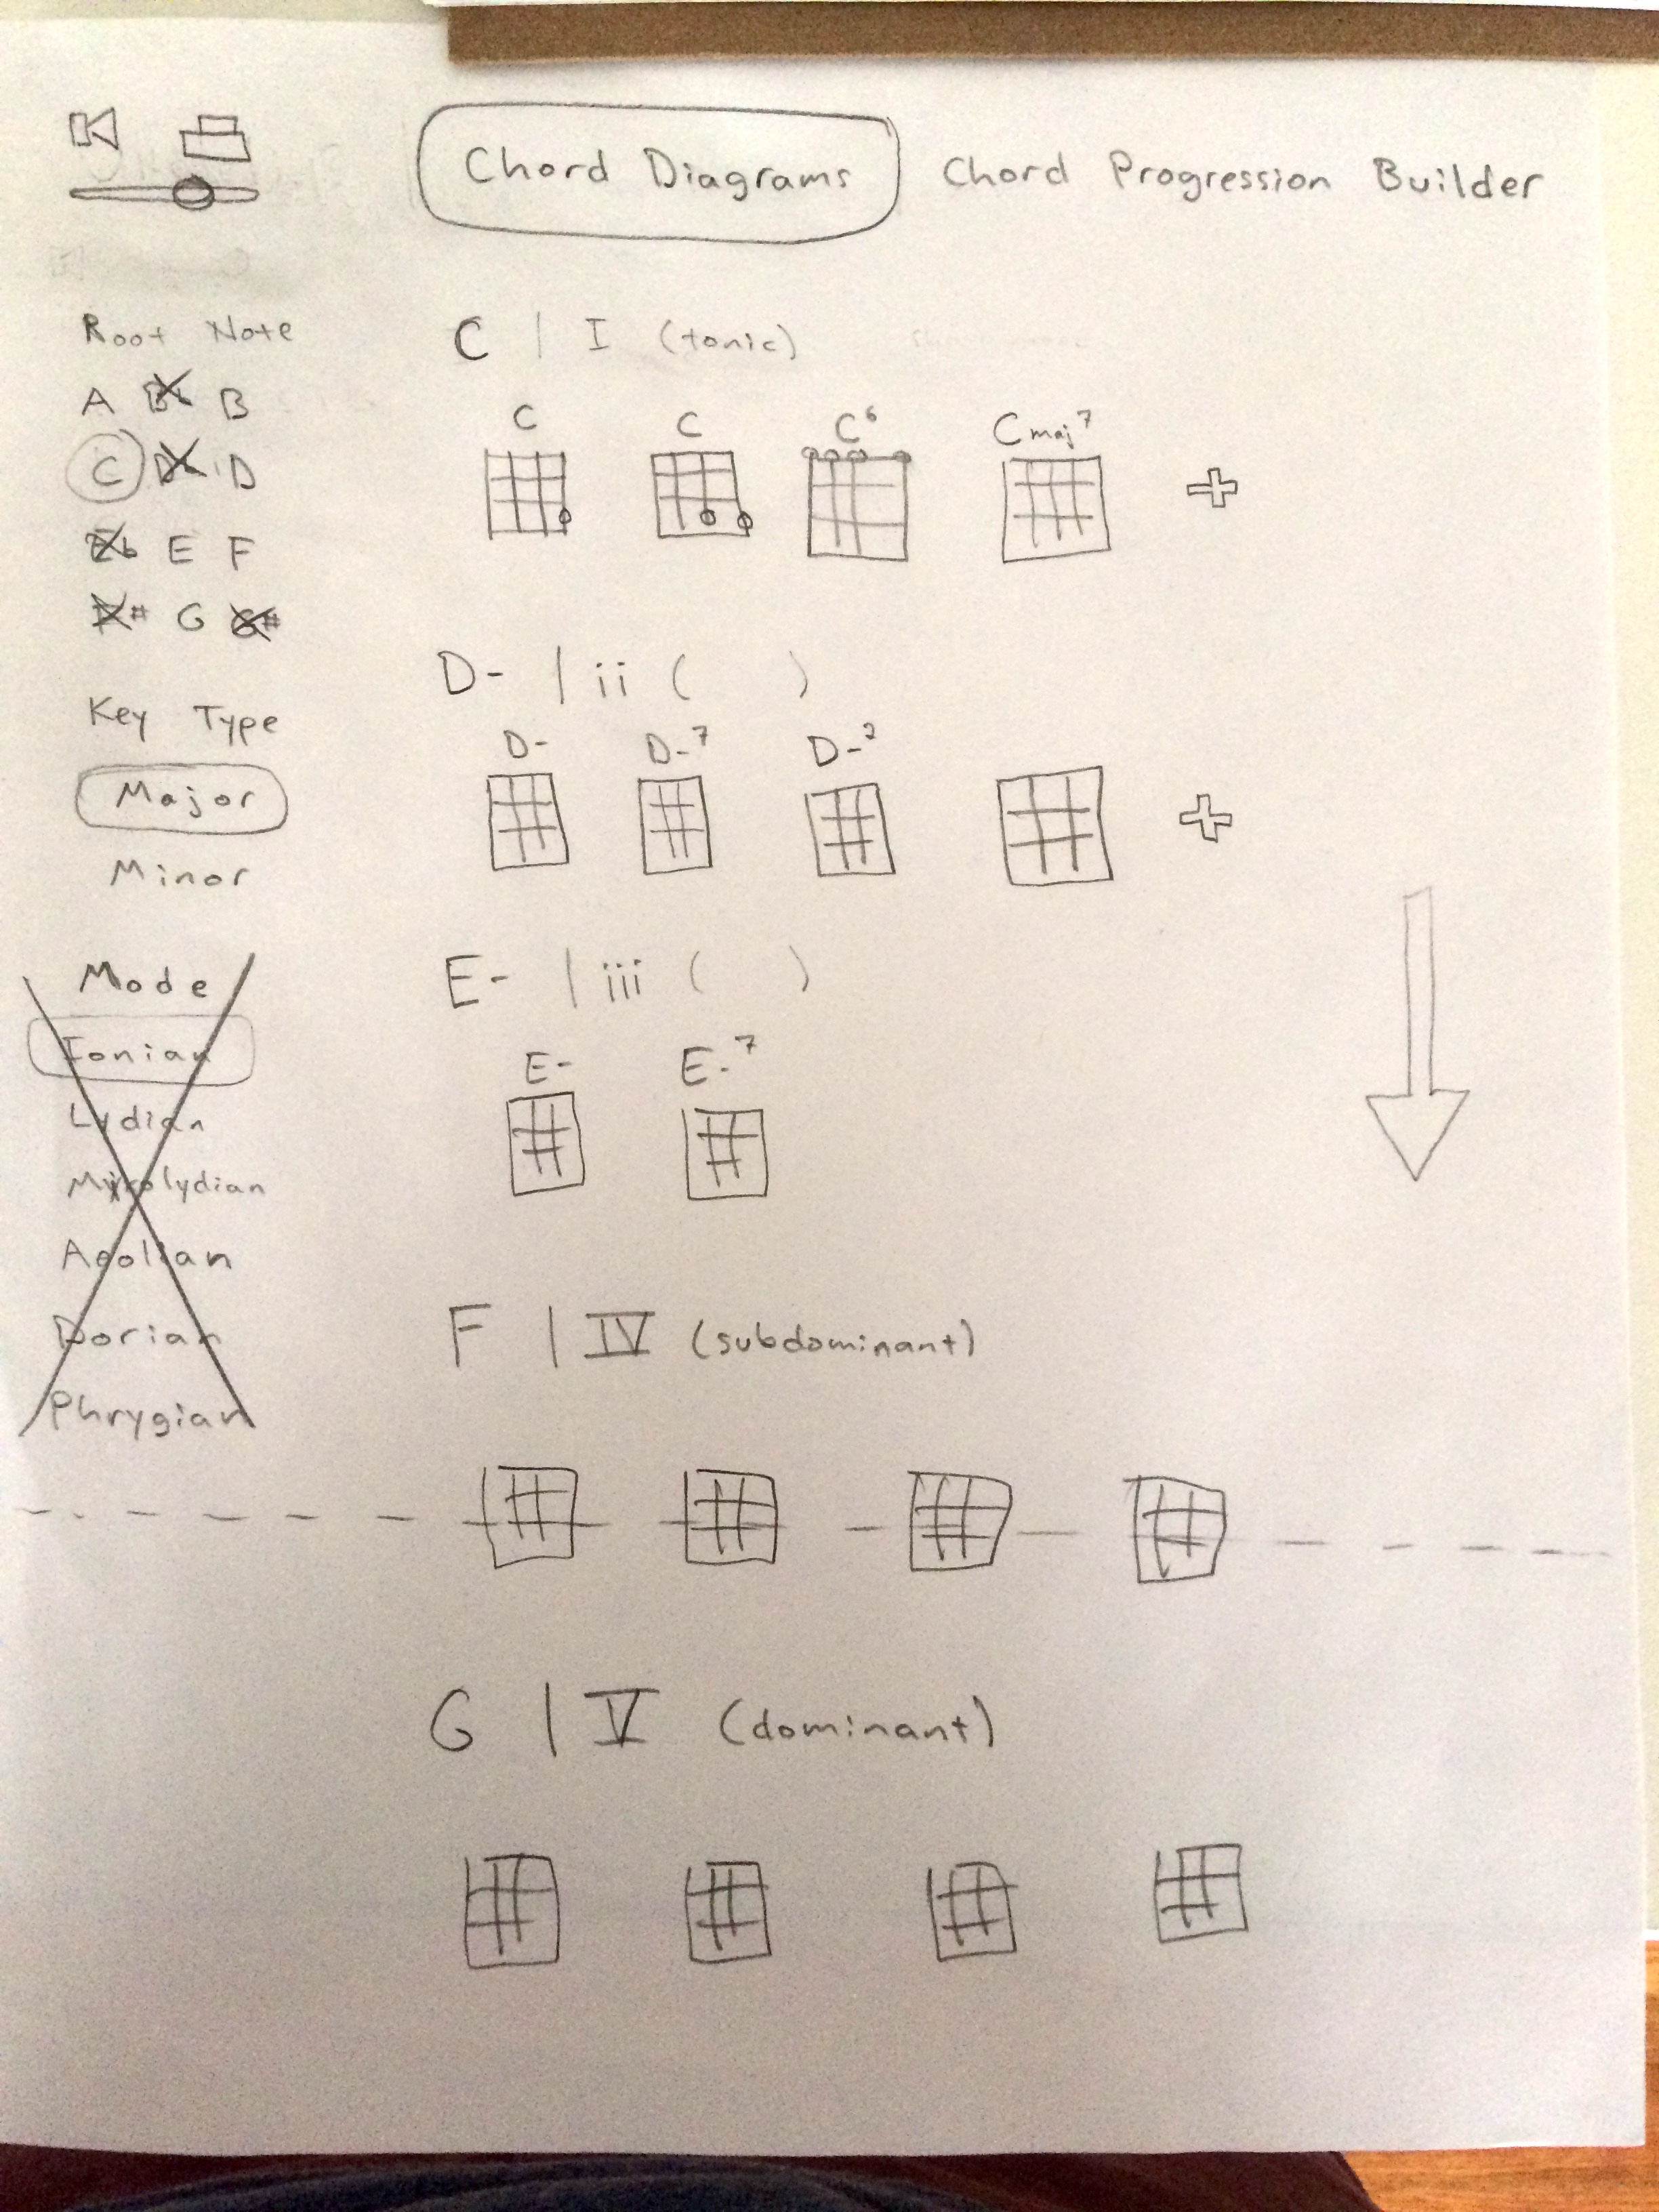 Chord Diagrams Chord Progression Builder
Root Note
A B
C D
Eb E F
F# G G#
Key Type
Major
Minor
Mode
Ionian
Lydian
Mixolydian
Aeolian
Dorian
Phrygian
C | I (tonic)
C C C6 Cmaj7
D- | ii ( )
D- D-7
E- | iii ( )
E- E-7
F | IV (subdominant)
G | V (dominant)